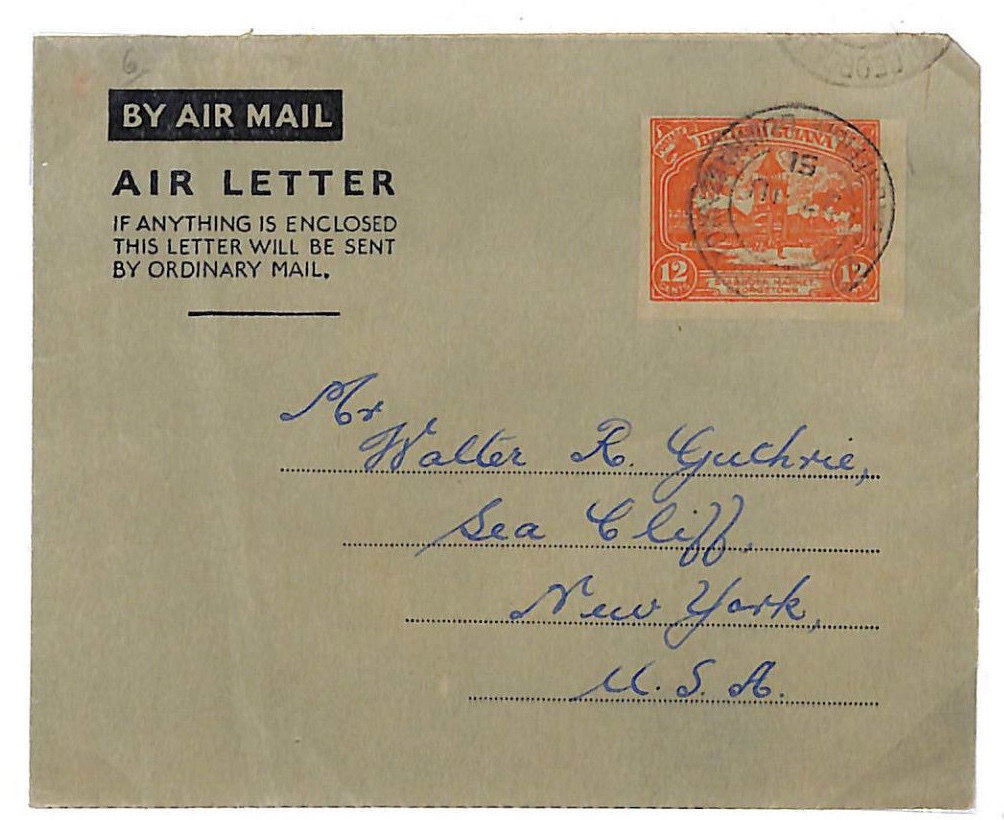 6
BY AIR MAIL
AIR LETTER
IF ANYTHING IS ENCLOSED
THIS LETTER WILL BE SENT
BY ORDINARY MAIL.
POSTAGE
BRITISH GUIANA
51
12 CENTS
STABROEK MARKET,
GEORGETOWN.
12
Mr
Walter R. Guthrie,
Sea Cliff,
New York,
U. S. A.